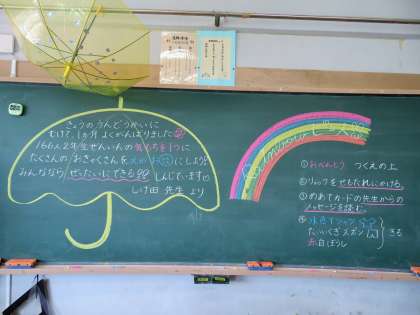 きょうのうんどうかいに
むけて、1か月 よくがんばりました
166人2年生ぜんいんの気もちを1つに
たくさんのおきゃくさんを えがおにしよう!
みんななら ぜったいにできる!! しんじています
しげ田 先生 より
①おべんとう つくえの上
②リュックをせもたれにかける。
③めあてカードの先生からの
メッセージを読む。
④水色Tシャツ
たいいくぎズボン きる
赤白ぼうし